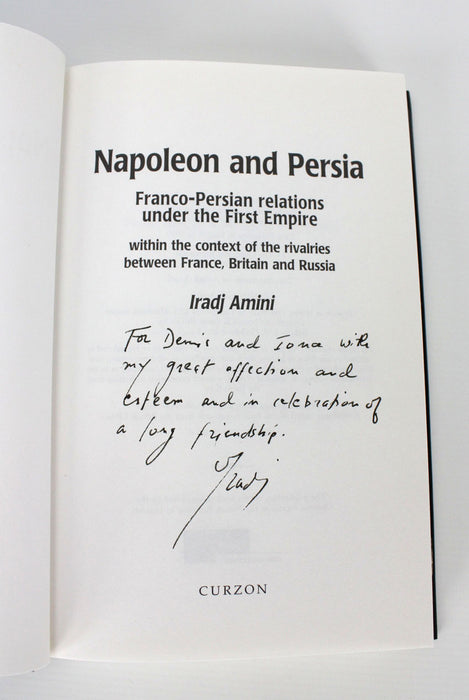 Napoleon and Persia
Franco-Persian relations
under the First Empire
within the context of the rivalries
between France, Britain and Russia
Iradj Amini
For Denis and Iona with
my great affection and
esteem and in celebration of
a long friendship.
Iradj
CURZON